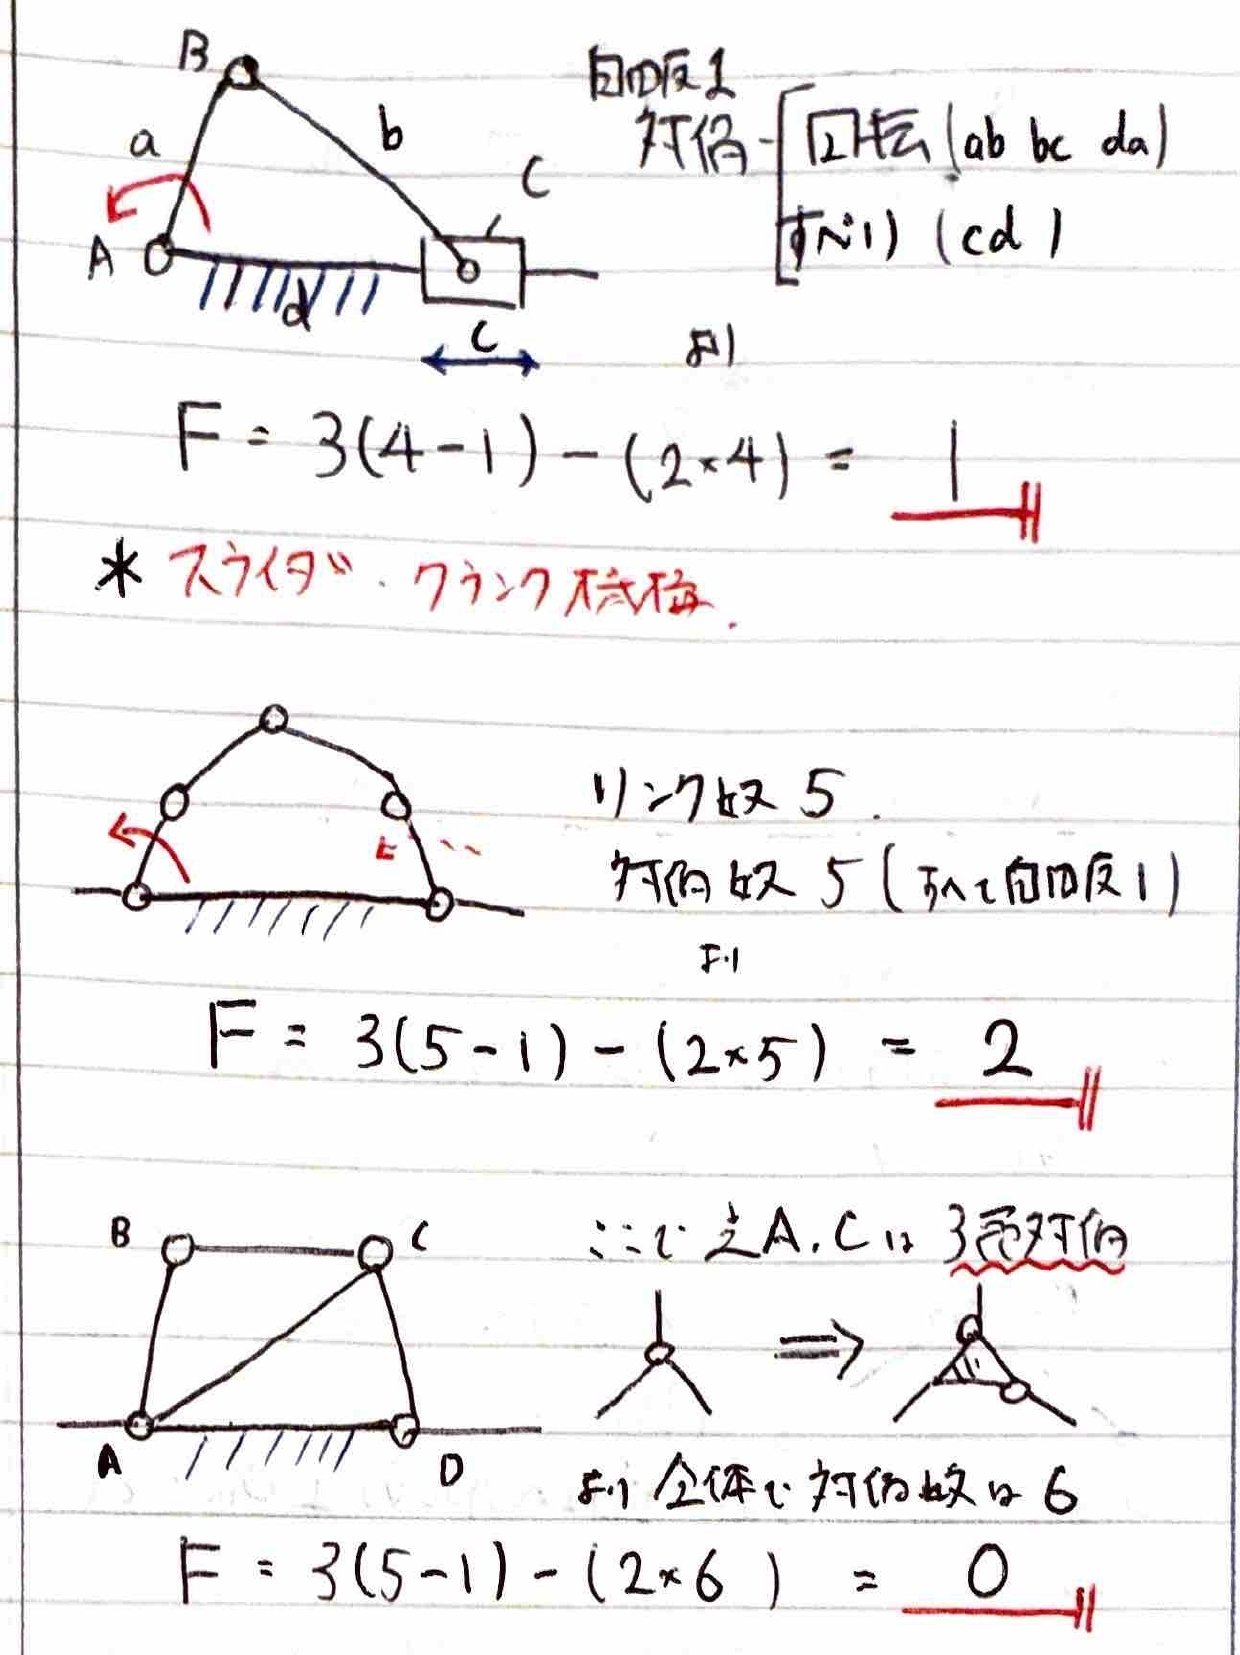 B
a
b
C
A
d
C
自由度1
対偶
回転(ab bc da)
すべり (cd)
より
F = 3(4-1) - (2×4) = 1
* スライダ・クランク機構.
リンク数 5.
対偶数 5 (すべて自由度1)
より
F = 3(5-1) - (2×5) = 2
B
C
A
D
ここで 点A, Cは 3重対偶
より 全体で 対偶数は 6
F = 3(5-1) - (2×6) = 0